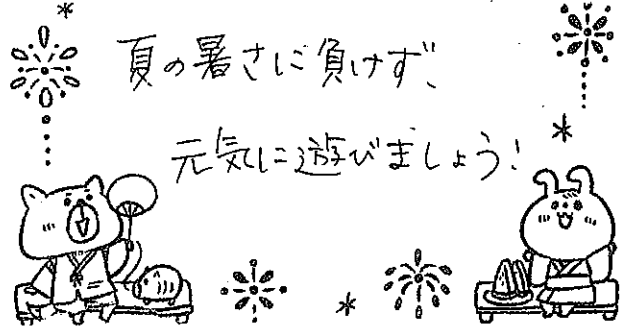 夏の暑さに負けず、
元気に遊びましょう!